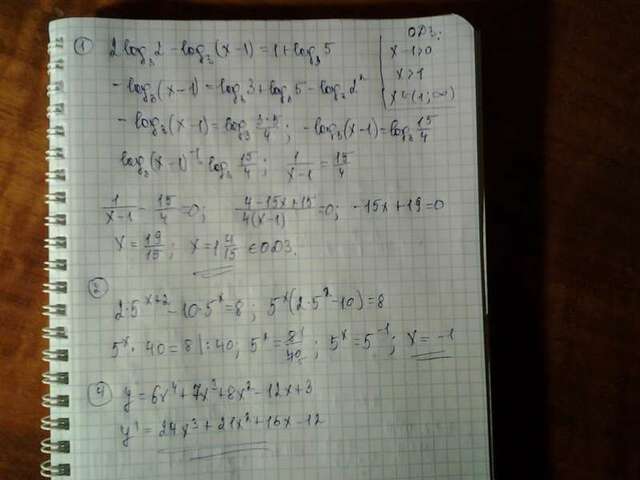 ① 2log₃2 - log₃(x-1) = 1 + log₃5
ОДЗ:
x-1>0
x>1
x∈(1;∞)
-log₃(x-1) = log₃3 + log₃5 - log₃2²
-log₃(x-1) = log₃ 3·5/4; -log₃(x-1) = log₃ 15/4
log₃(x-1)⁻¹ = log₃ 15/4; 1/(x-1) = 15/4
1/(x-1) - 15/4 = 0; (4-15x+15)/(4(x-1)) = 0; -15x+19=0
x = 19/15; x = 1 4/15 ∈ ОДЗ.
② 2·5ˣ⁺² - 10·5ˣ = 8; 5ˣ(2·5² - 10) = 8
5ˣ · 40 = 8 |:40; 5ˣ = 8/40; 5ˣ = 5⁻¹; x = -1
④ y = 6x⁴ + 7x³ + 8x² - 12x + 3
y' = 24x³ + 21x² + 16x - 12